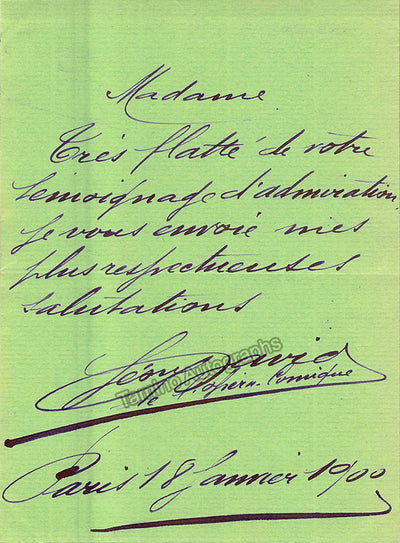 Madame
Très flatté de votre
témoignage d'admiration,
je vous envoie mes
plus respectueuses
salutations
Léon David
de l'Opéra-Comique
Tamino Autographs
Paris 18 Janvier 1900